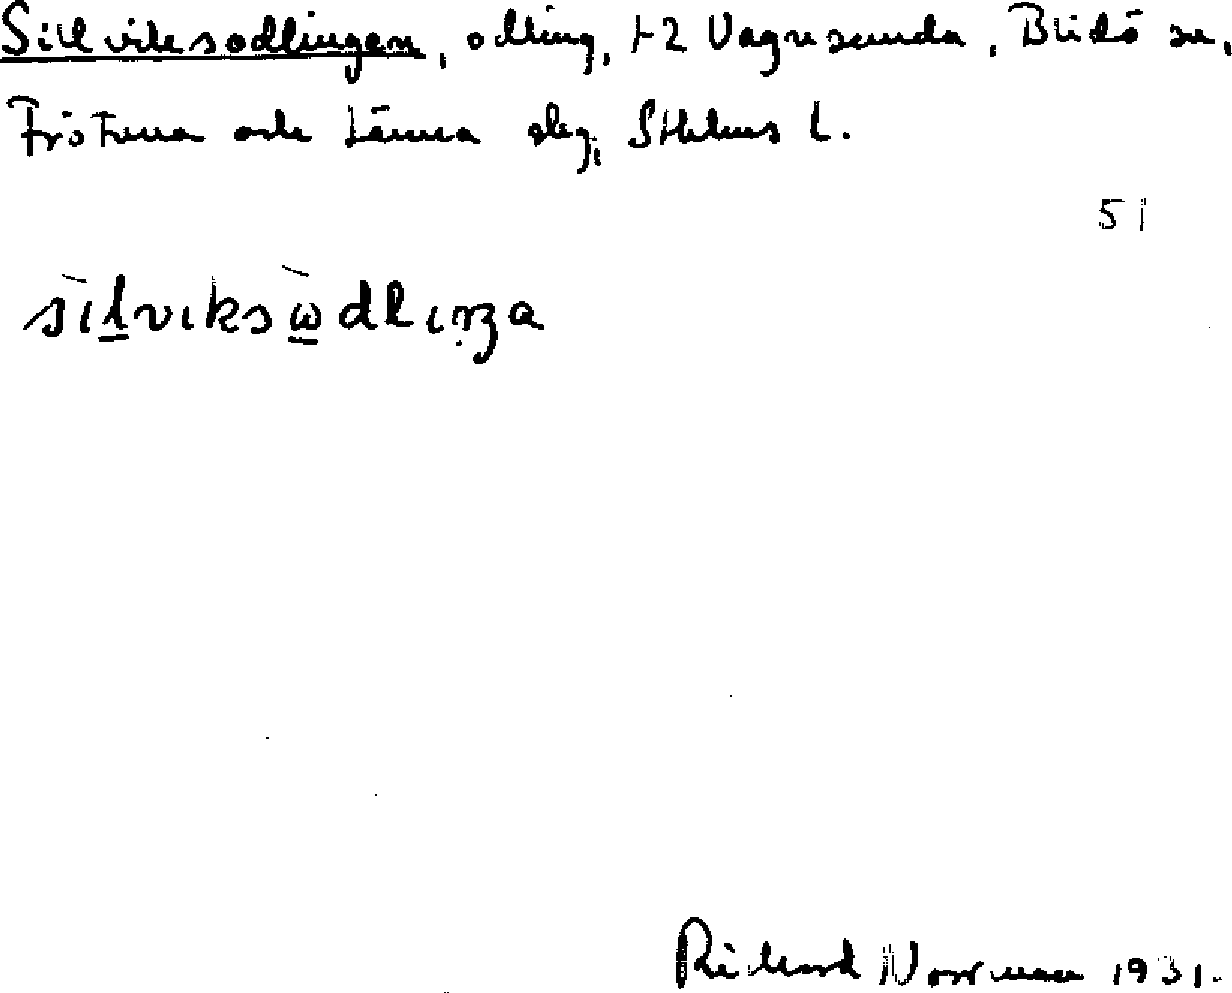 Sillviksodlingen, odling, 1-2 Vagnsunda, Blidö sn,
Frötuna och Länna slg, Sthlms l.
51
sìlviksὼdliŋa
Richard Norrman 1931.